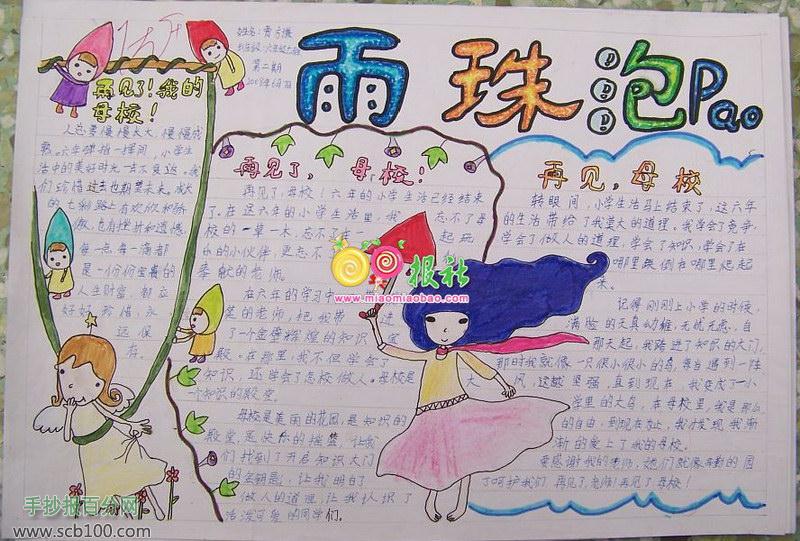 雨珠泡Pao
第二期
再见了!我的
母校!
人总要慢慢长大,慢慢成
熟。六年弹指一挥间,小学生
活中的美好时光一去不复返。我
们珍惜过去也期望未来。成长
的七彩路上有欢欣和骄
傲,也有挫折和遗憾
每一点每一滴都
是一份份宝贵的
人生财富,都应
好好珍惜,永
远保
存。
再见了,母校!
再见了,母校!六年的小学生活已经结束
了。在这六年的小学生活里,我忘不了母
校的一草一木,忘不了在一起玩
的小伙伴,更忘不
奉献的老师。
在六年的学习中
了一个金碧辉煌的知识宫
殿。在那里,我不但学会了
知识,还学会了怎校做人。母校是
一个知识的殿堂。
母校是美丽的花园,是知识的
殿堂,是快乐的摇篮,让我
们找到了开启知识大门
的金钥匙,让我明白了
做人的道理,让我认识了
活泼可爱的同学们。
再见,母校
转眼间,小学生活马上结束了,这六年
的生活带给了我莫大的道理。我学会了竞争
学会了做人的道理,学会了知识,学会了在
哪里跌倒在哪里爬起
来。
记得刚刚上小学的时候,
满脸的天真幼稚,无忧无虑。自
那天起,我踏进了知识的大门,
那时我就像一只很小很小的鸟,每当遇到一阵
大风,这越坚强,直到现在,我变成了一小
学里的大鸟,在母校里,我是那么
的自由,到现在为止,我才发现我渐
渐的爱上了我的母校。
要感谢我的老师,她们就像辛勤的园
丁呵护我们,再见了,老师!再见了母校!
报社
www.miaomiaobao.com
手抄报百分网
www.scb100.com